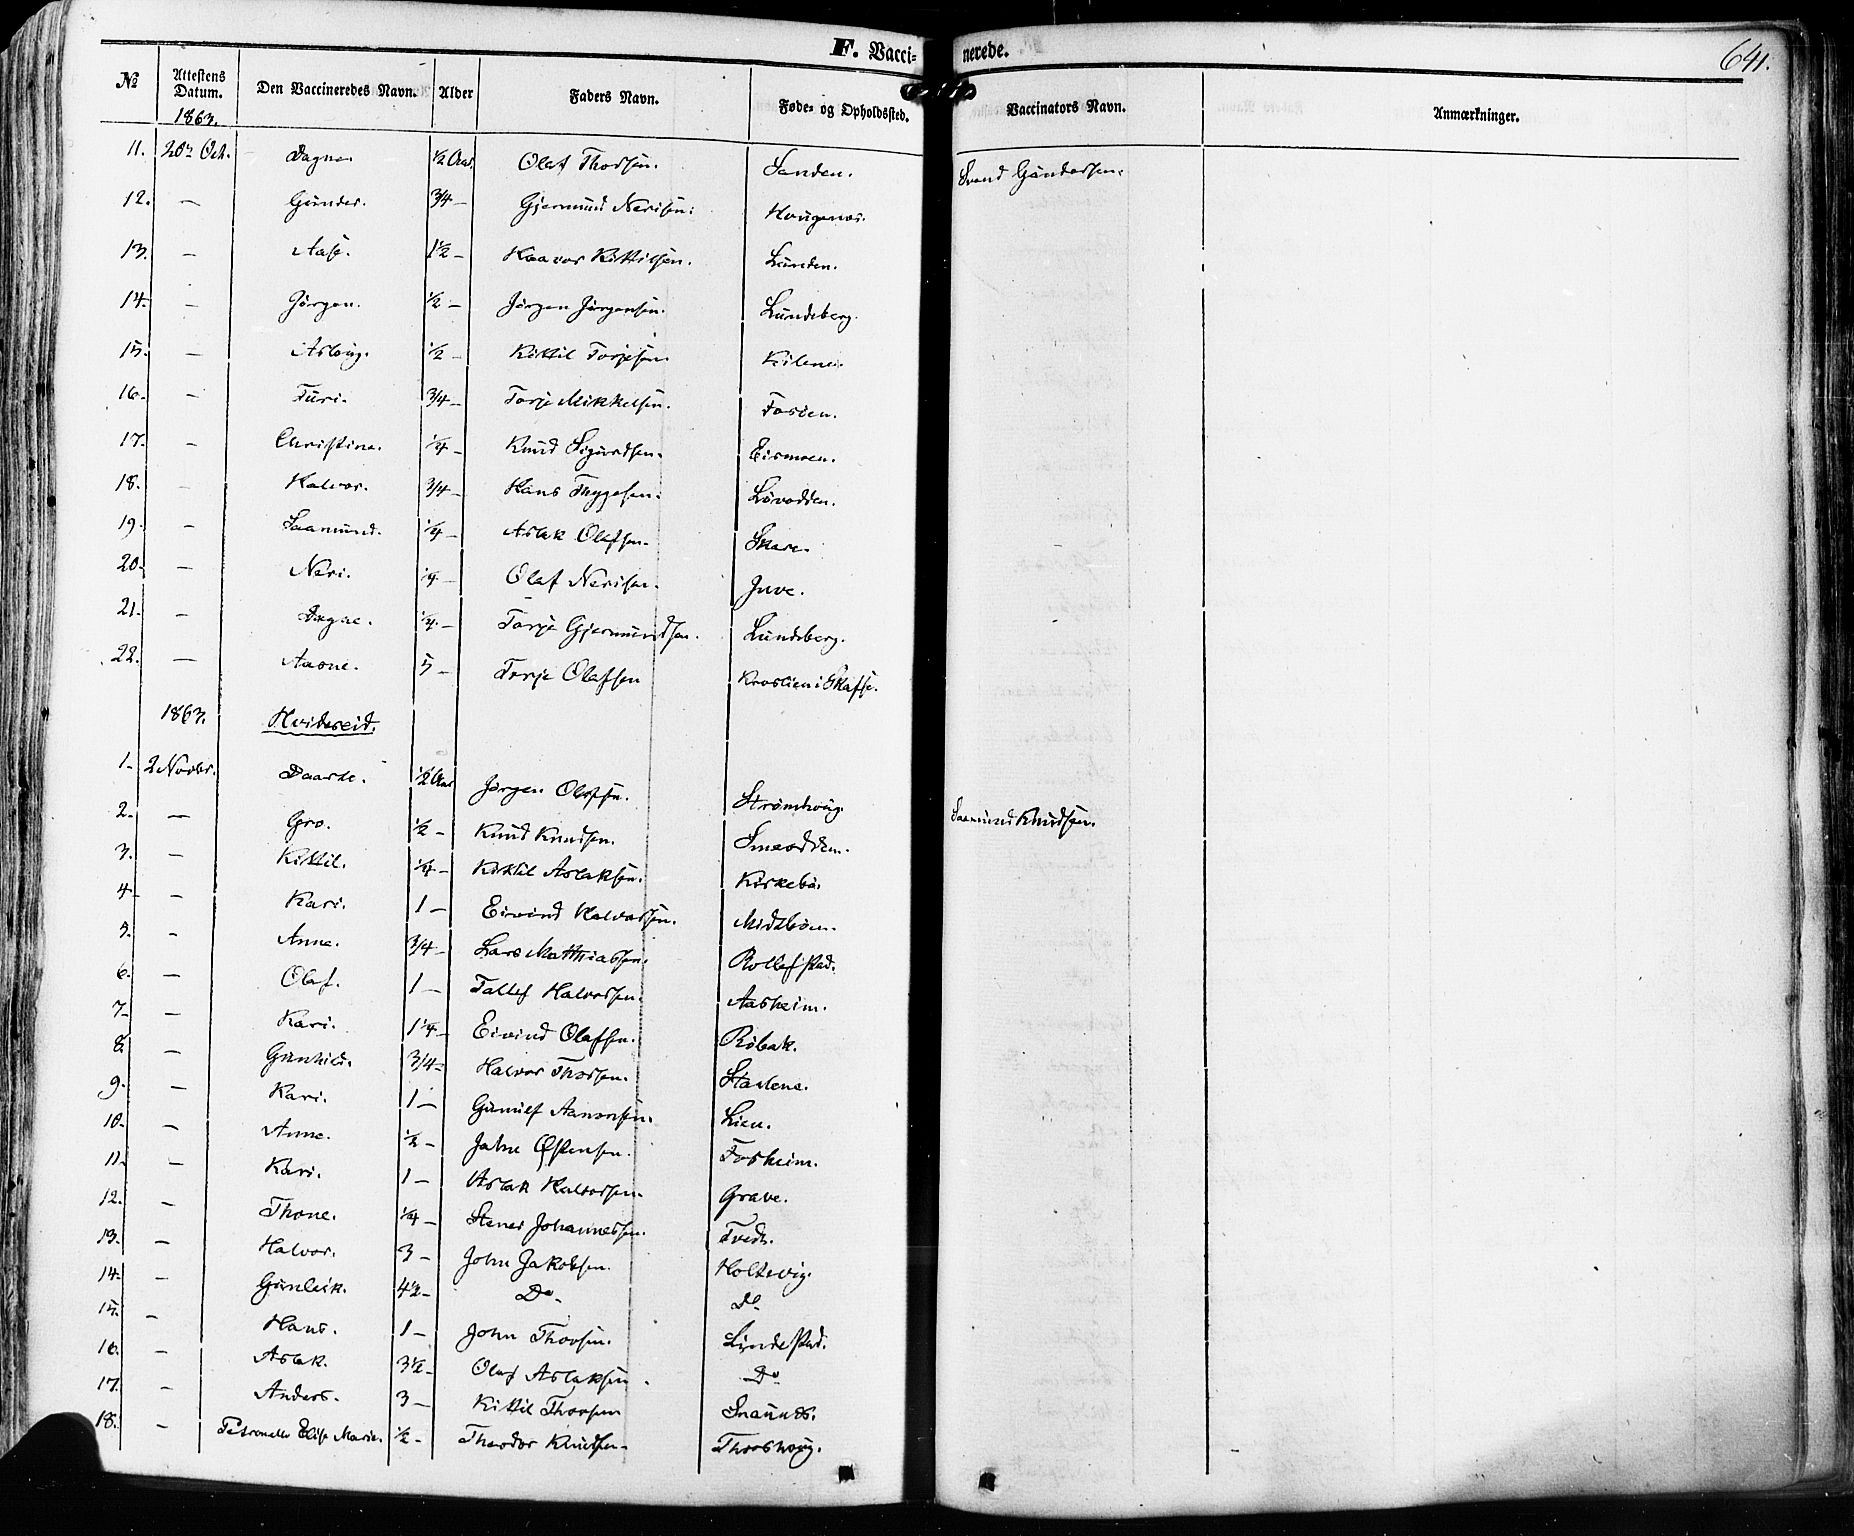 F. Vacci-
nerede.
641.
№ Attestens Datum. Den Vaccineredes Navn. Alder Faders Navn. Føde- og Opholdssted. Vaccinators Navn. Anmærkninger.
1863.
11. 20de Oct. Dagne. 1/2 Aar Olaf Thorsen. Sanden. Svend Gundersen.
12. — Gunder. 3/4 — Gjermund Nerisen. Haugenes.
13. — Aase. 1 1/2 — Haavor Kittilsen. Lunden.
14. — Jørgen. 1/2 — Jørgen Jørgensen. Lundeberg.
15. — Aslaug. 1/2 — Kittil Torjesen. Kilene.
16. — Turi. 3/4 — Torje Mikkelsen. Tosien.
17. — Christine. 1/4 — Knud Sigurdsen. Eismoen.
18. — Halvor. 3/4 — Hans Thygesen. Løvodden.
19. — Saamund. 1/4 — Aslak Olafsen. Skare.
20. — Neri. 1/4 — Olaf Nerisen. Juve.
21. — Dagne. 1/4 — Torje Gjermundsen. Lundeberg.
22. — Aasne. 5 — Torje Olafsen Kroslien i Skafse.
1863. Hvideseid.
1. 2 Novbr. Daarte. 1/2 Aar Jørgen Olafsen. Strømhoug.
2. — Gro. 1/2 — Knud Knudsen. Smeodden. Saamund Knudsen.
3. — Kittil. 1/4 — Kittil Aslaksen. Kirkebø.
4. — Kari. 1 — Eivind Halvorsen. Midtbøen.
5. — Anne. 3/4 — Lars Matthiassen. Rollefstad.
6. — Olaf. 1 — Tallef Halvorsen. Aasheim.
7. — Kari. 1 1/4 — Eivind Olafsen. Robak.
8. — Gunhild. 3/4 — Halvor Thorsen. Stadene.
9. — Kari. 1 — Gunulf Aanonsen. Lien.
10. — Anne. 1/2 — John Østensen. Forsheim.
11. — Kari. 1 — Aslak Halvorsen. Grave.
12. — Thone. 1/4 — Stener Johannessen. Tvedt.
13. — Halvor. 3 — John Jakobsen. Holtsvig.
14. — Gunleik. 4 1/2 — Do — Do
15. — Hans. 1 — John Thorsen. Lindestad.
16. — Aslak. 3 1/2 — Olaf Aslaksen. Do
17. — Anders. 3 — Kittil Thorsen Snaunds.
18. — Petronelle Elise Marie. 1/2 — Theodor Knudsen. Thorshoug.